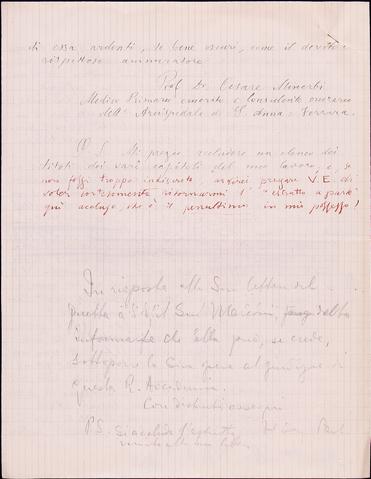 di essa ardenti, se bene oscuri, come il devoto e
rispettoso ammiratore
Prof. Dr. Cesare Minerbi
Medico Primario emerito e Consulente onorario
dell' Arcispedale di S. Anna - Ferrara.
P. S. Mi pregio accludere un elenco dei
titoli dei vari capitoli del mio lavoro e, se
non fossi troppo indiscreto, ardirei pregare V. E. di
voler cortesemente ritornarmi l' "estratto a parte"
qui accluso, che è il penultimo in mio possesso!
In risposta alla Sua lettera del
diretta a S. E. il Sen. Marconi,
informarla che Ella può, se crede,
sottoporre la Sua opera al giudizio di
questa R. Accademia.
Con distinti ossequi
P.S. Si acclude l'estratto